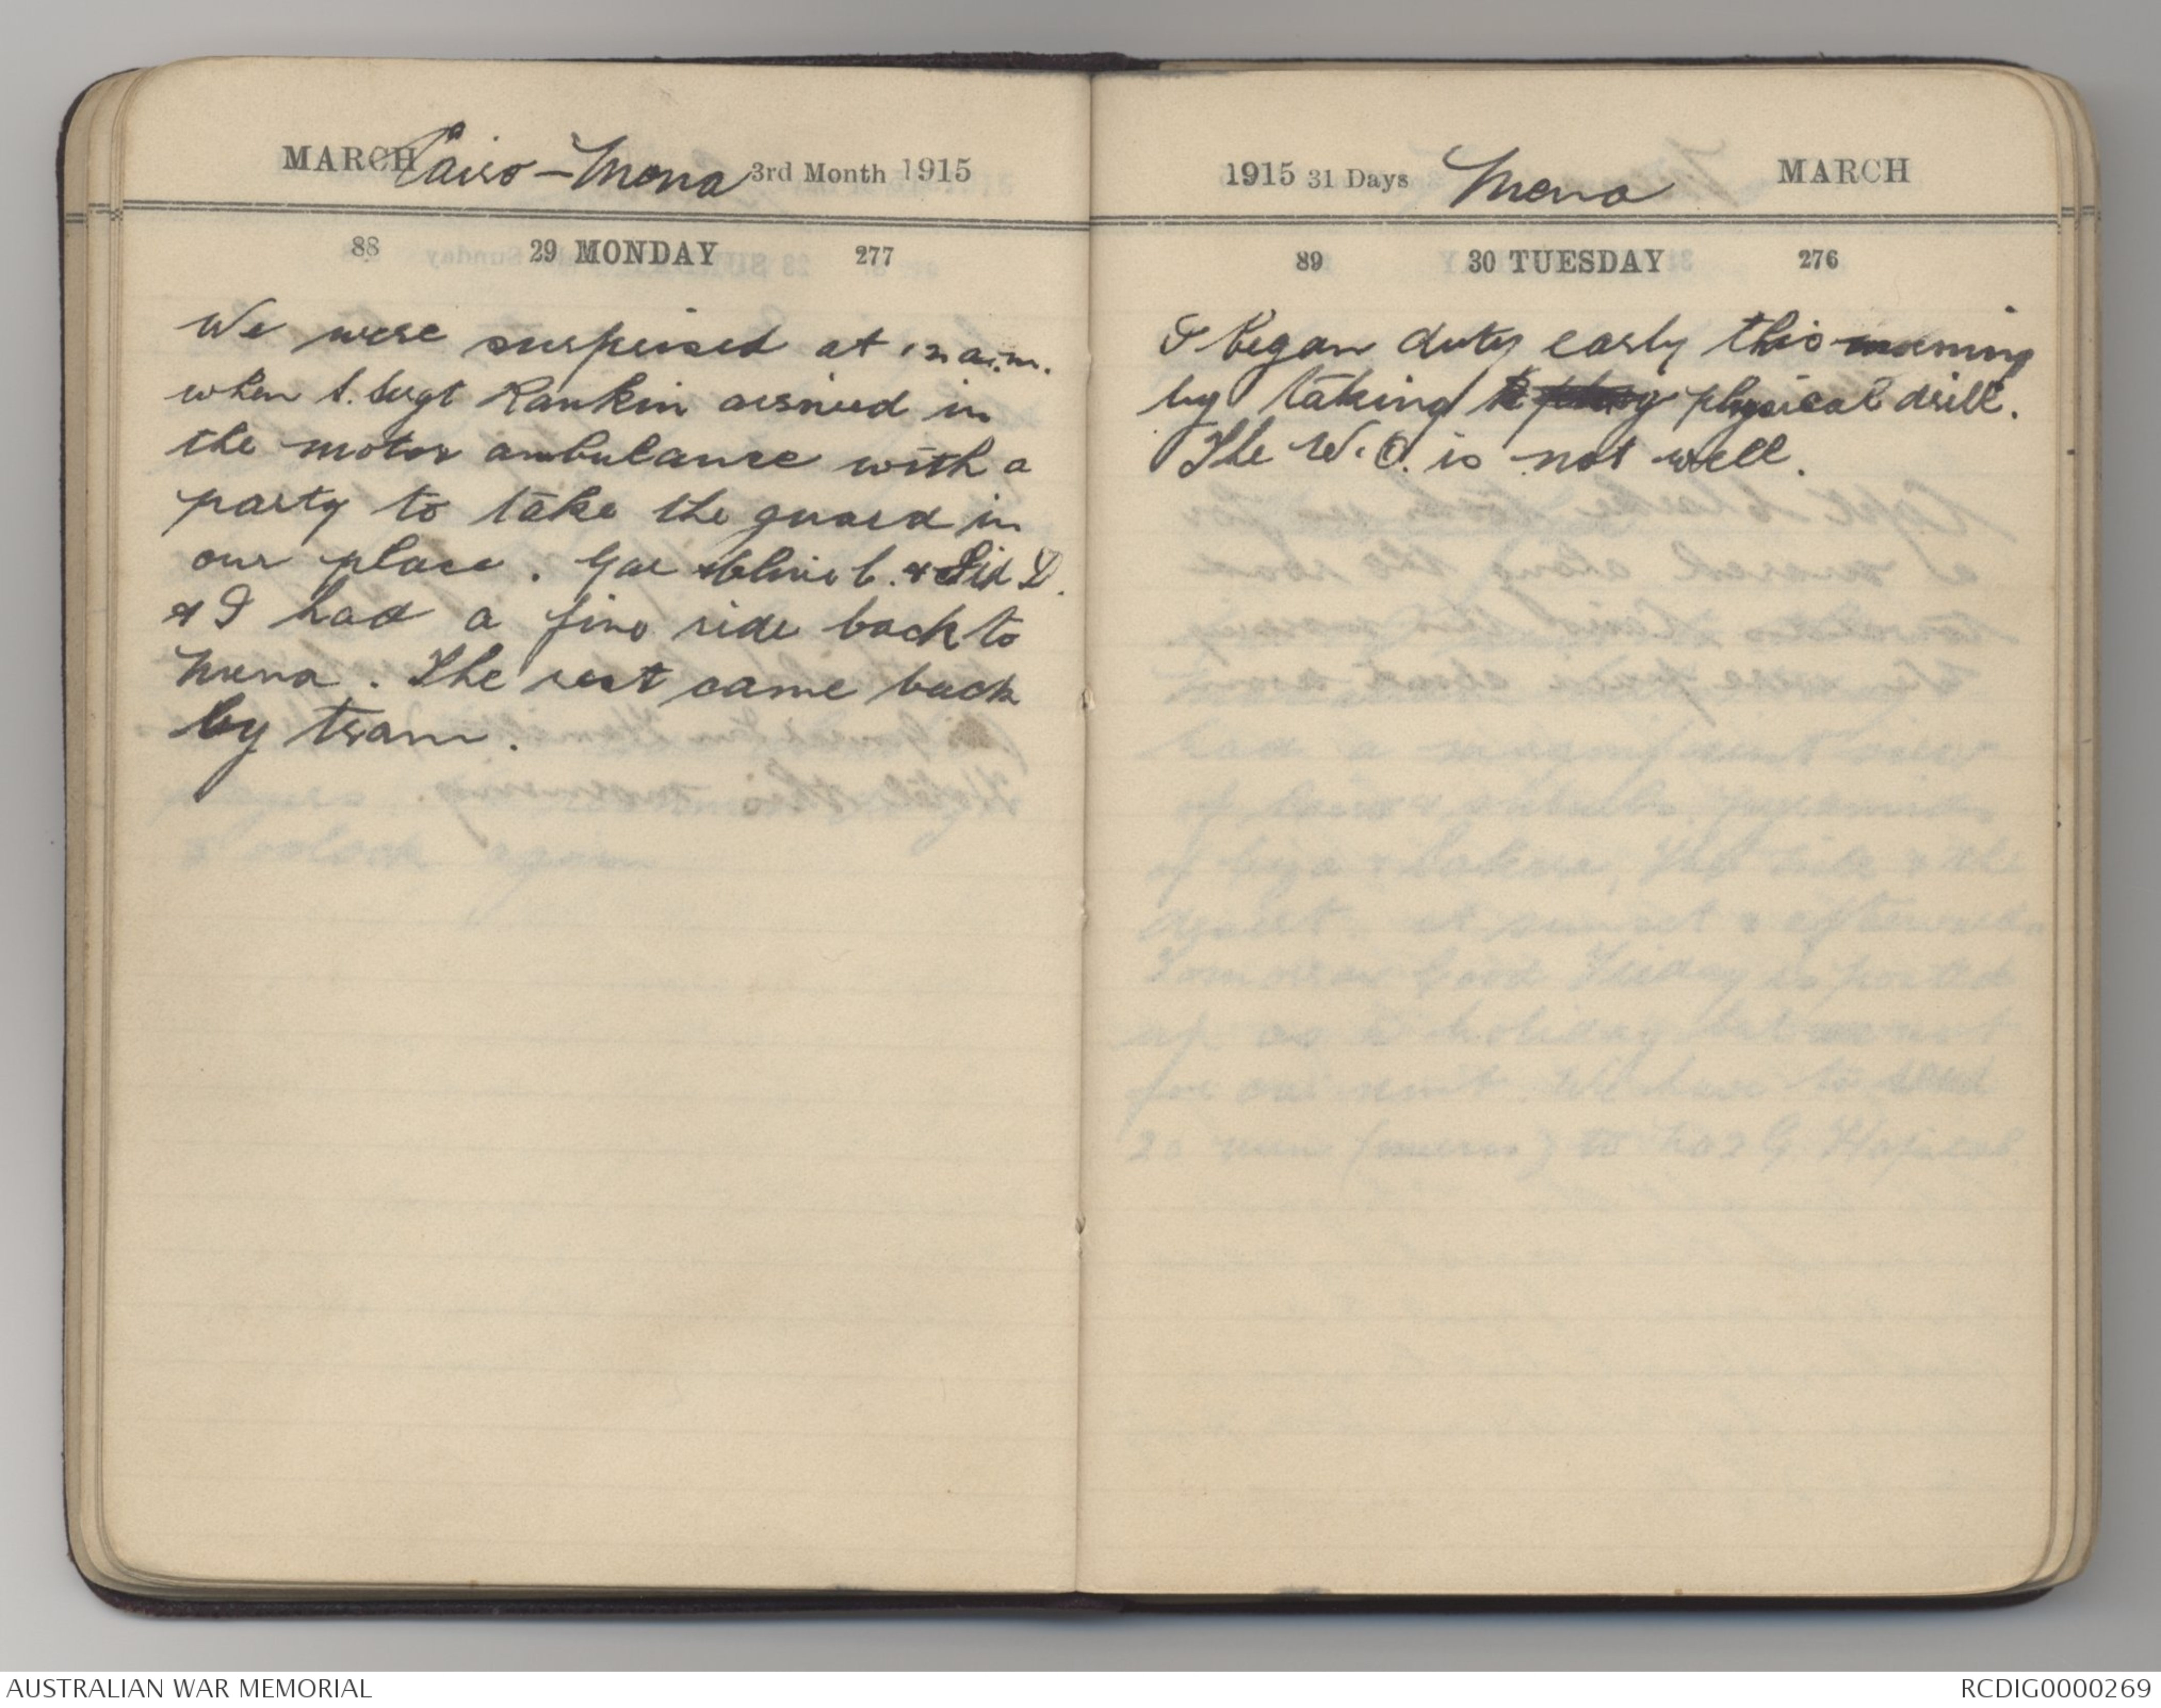 MARCH Cairo - Mena 3rd Month 1915
88 29 MONDAY 277
We were surprised at 12 a.m.
when S. Sergt Rankin arrived in
the motor ambulance with a
party to take the guard in
our place. Clive C. & Sid D.
& I had a fine ride back to
Mena. The rest came back
by tram.
1915 31 Days Mena MARCH
89 30 TUESDAY 276
I began duty early this morning
by taking physical drill.
The W.O. is not well.
AUSTRALIAN WAR MEMORIAL
RCDIG0000269